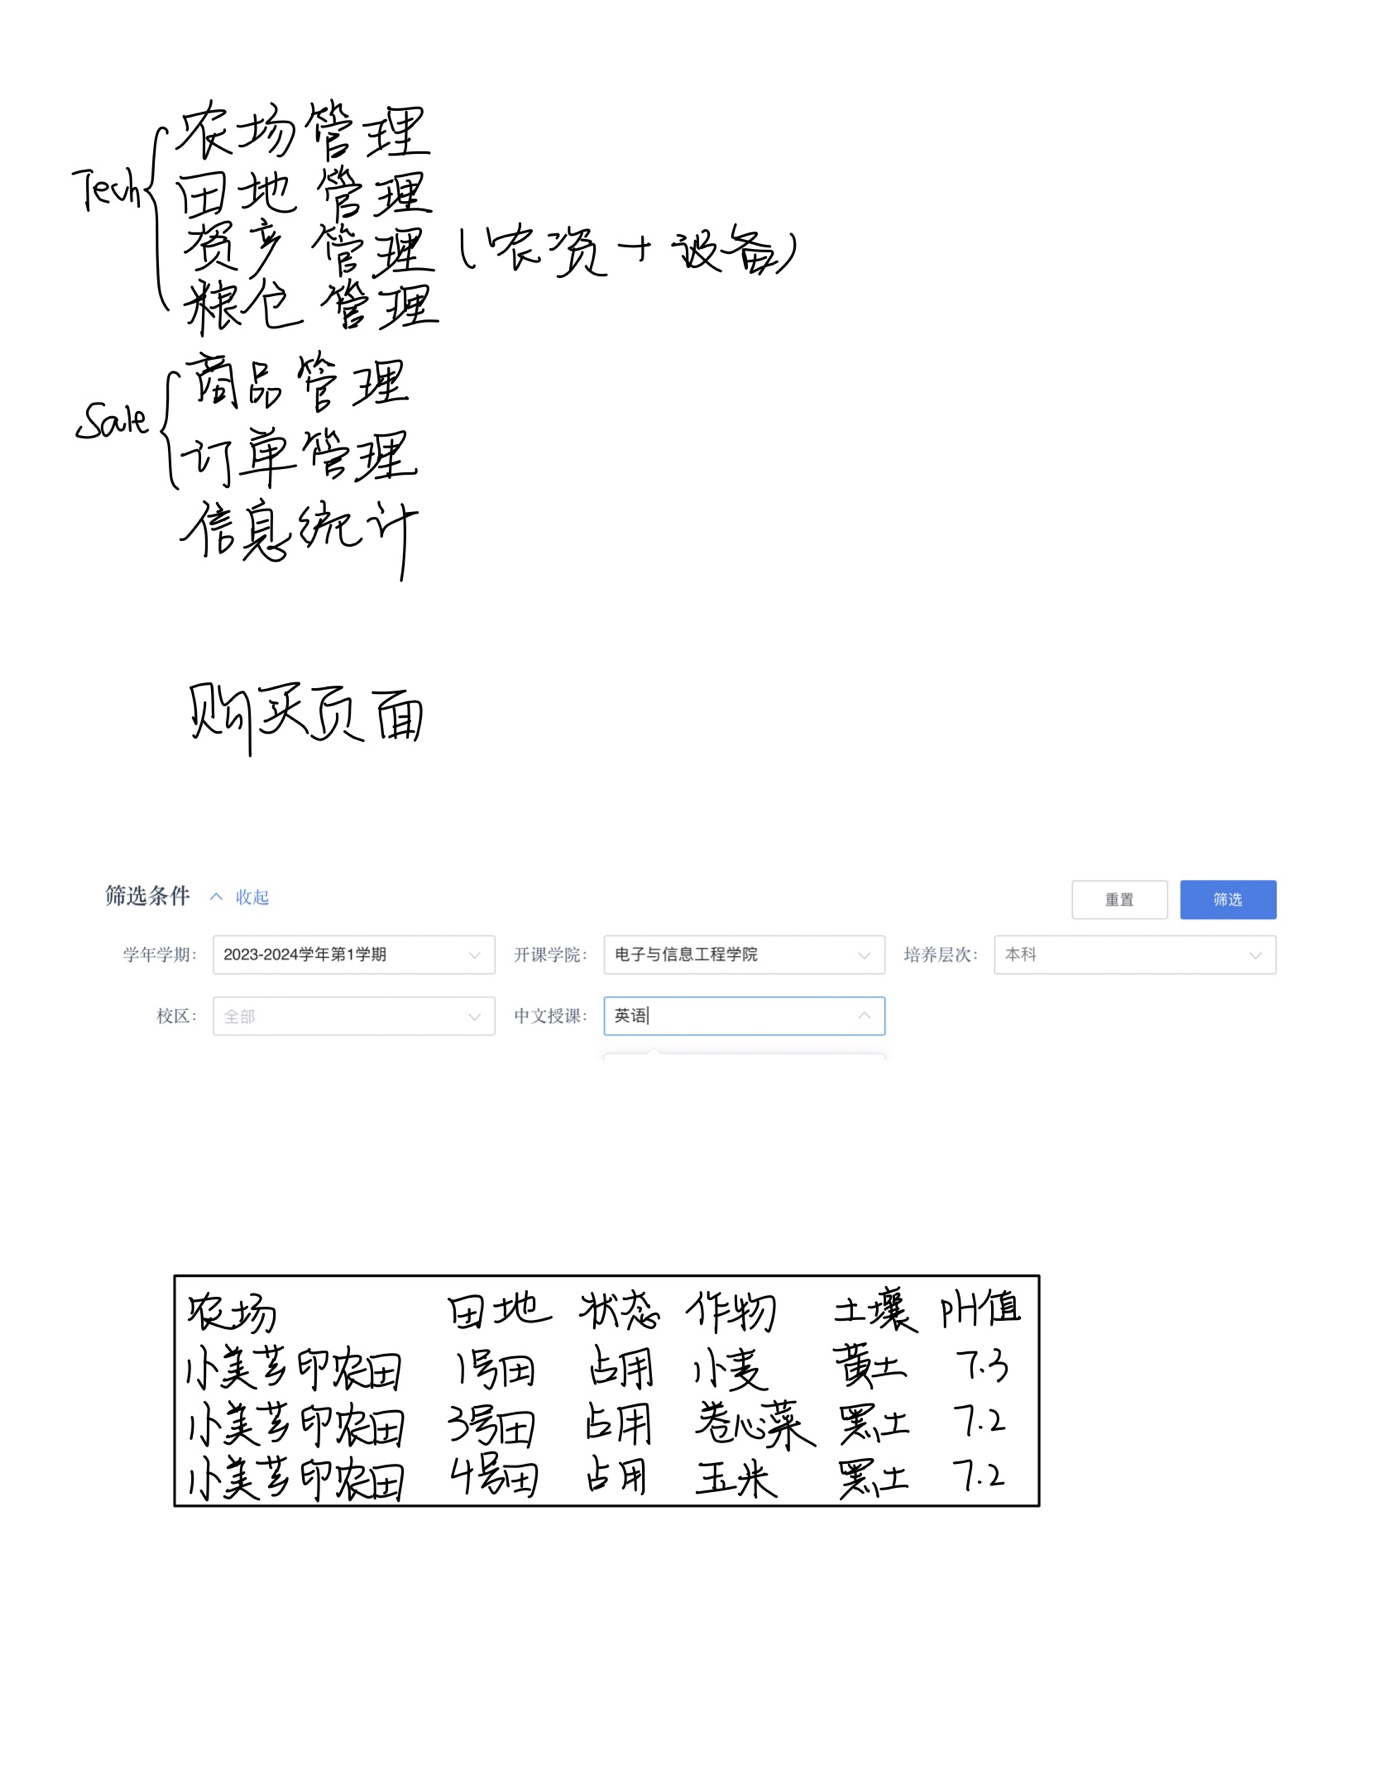 Tech
农场管理
田地管理
资产管理(农资+设备)
粮仓管理
Sale
商品管理
订单管理
信息统计
购买页面
筛选条件 收起 重置 筛选
学年学期: 2023-2024学年第1学期 开课学院: 电子与信息工程学院 培养层次: 本科
校区: 全部 中文授课: 英语
农场 田地 状态 作物 土壤 pH值
小美芗印农田 1号田 占用 小麦 黄土 7.3
小美芗印农田 3号田 占用 卷心菜 黑土 7.2
小美芗印农田 4号田 占用 玉米 黑土 7.2